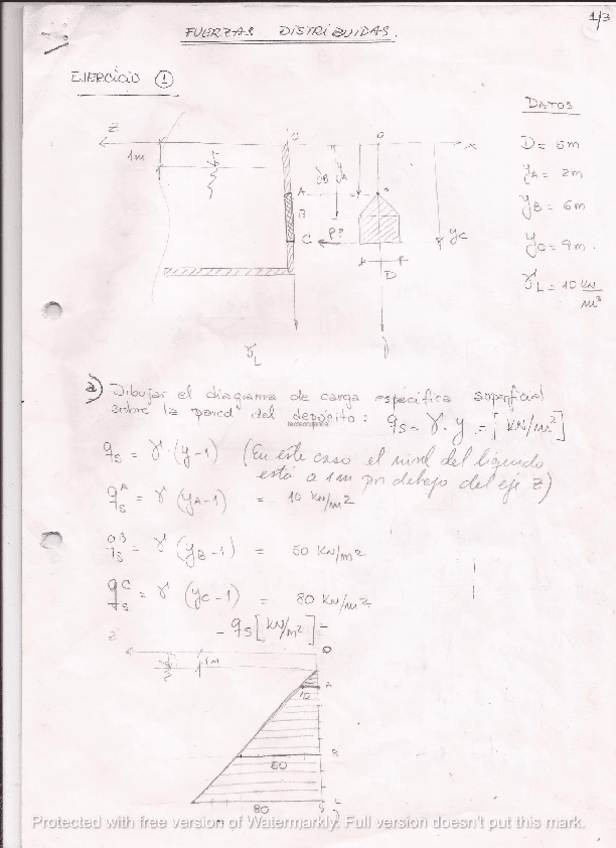 1/3
FUERZAS DISTRIBUIDAS.
EJERCICIO ①
DATOS
D = 5m
yA = 2m
yB = 6m
yC = 9m.
γL = 10 KN/m³
Z
1m
O
O
x
yB
yA
A
B
C
P?
yC
D
γL
a) Dibujar el diagrama de carga específica superficial
sobre la pared del depósito: qs = γ · y = [KN/m²]
tecnoocupance
qs = γ · (y-1) (En este caso el nivel del líquido
está a 1m por debajo del eje Z)
qsA = γ (yA-1) = 10 KN/m2
qsB = γ (yB-1) = 50 KN/m2
qsC = γ (yC-1) = 80 KN/m2
- qs [KN/m2]
z
1m
O
10
60
80
Protected with free version of Watermarkly. Full version doesn't put this mark.